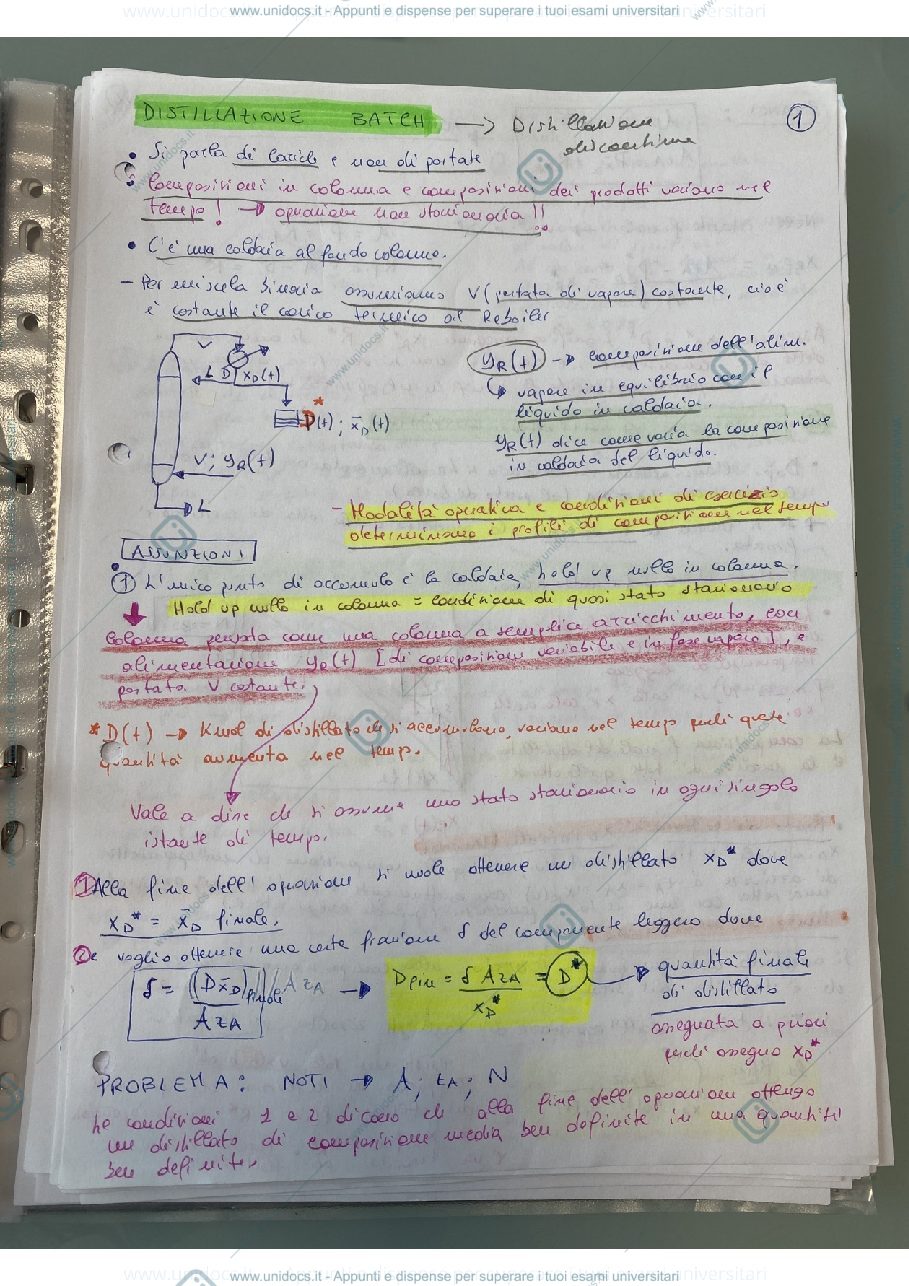 www.unidocs.it - Appunti e dispense per superare i tuoi esami universitari
DISTILLAZIONE BATCH → Distillazione discontinua
1
• Si parla di cariche e non di portate
• Composizioni in colonna e composizioni dei prodotti variano nel
tempo! → operazione non stazionaria!!
• C'è una caldaia al fondo colonna.
– Per miscela binaria assumiamo V (portata di vapore) costante, cioè
è costante il carico termico al Reboiler
V
L D xD(t)
D*(t); x̄D(t)
V; yR(t)
L
yR(t) → composizione dell'alim.
↳ vapore in equilibrio con il
liquido in caldaia.
yR(t) dice come varia la composizione
in caldaia del liquido.
– Modalità operativa e condizioni di esercizio
determinano i profili di composizione nel tempo
ASSUNZIONI
1 L'unico punto di accumulo è la caldaia, hold up nullo in colonna.
Hold up nullo in colonna = condizione di quasi stato stazionario
↓ Colonna pensata come una colonna a semplice arricchimento, con
alimentazione yR(t) [di composizione variabile e in fase vapore], e
portata V costante.
* D(t) → Kmol di distillato che si accumulano, variano nel tempo perché questa
quantità aumenta nel tempo.
Vale a dire che si assume uno stato stazionario in ogni singolo
istante di tempo.
1 Alla fine dell'operazione si vuole ottenere un distillato xD* dove
xD* = x̄D finale.
2 e voglio ottenere una certa frazione δ del componente leggero dove
δ = (D x̄D)finale / A zA → Dfin = δ A zA / xD* = D* → quantità finale
di distillato
assegnata a priori
perché assegno xD*
PROBLEMA: NOTI → A; zA; N
Le condizioni 1 e 2 dicono che alla fine dell'operazione ottengo
un distillato di composizione media ben definita in una quantità
ben definita.
www.unidocs.it - Appunti e dispense per superare i tuoi esami universitari